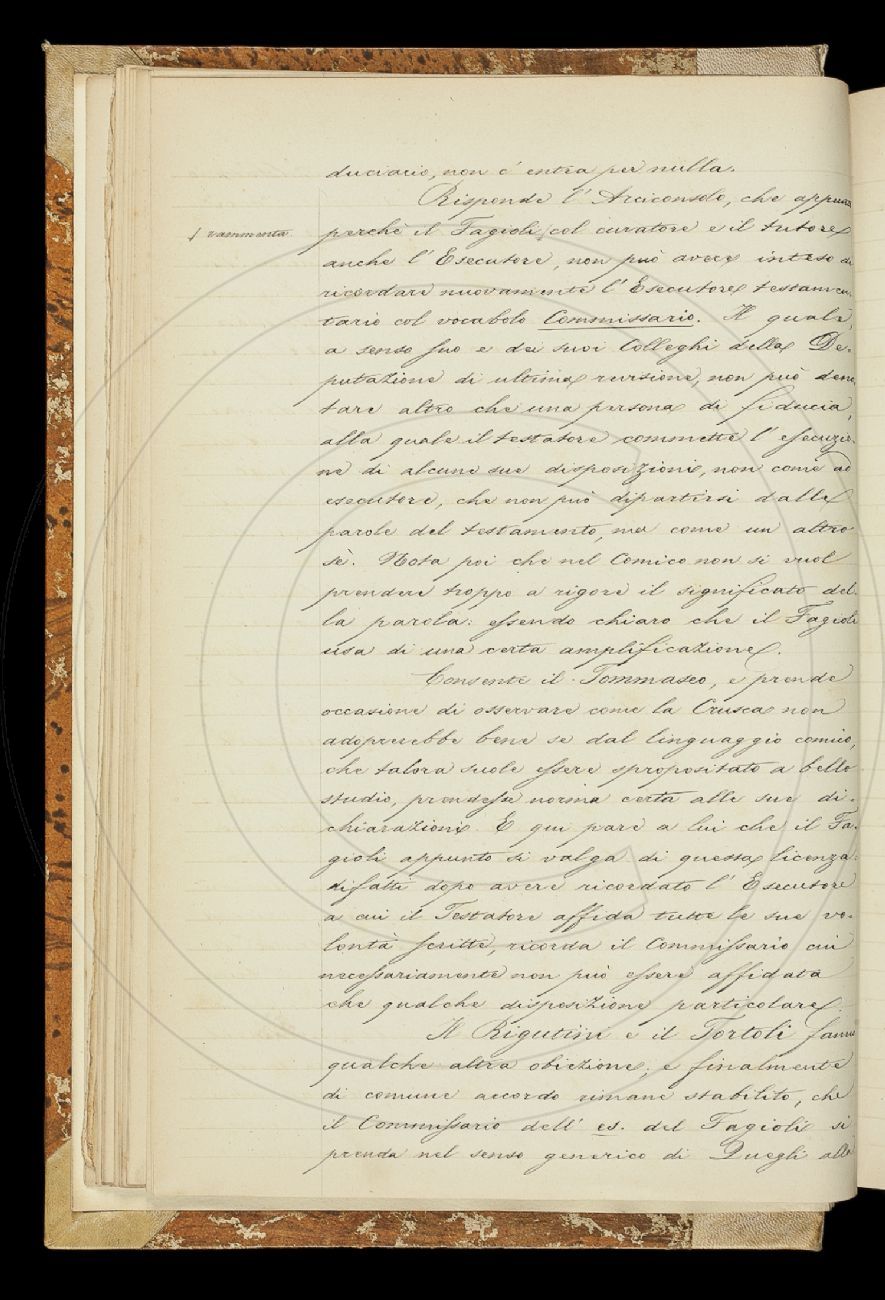 duciario, non c'entra per nulla.
Risponde l'Arciconsolo, che appun
perchè il Fagioli col curatore e il tutore
rammenta
anche l'Esecutore, non può avere inteso di
ricordare nuovamente l'Esecutore testamen-
tario col vocabolo Commissario. Il quale,
a senso suo e dei suoi Colleghi della De-
putazione di ultima revisione, non può deno
tare altro che una persona di fiducia,
alla quale il testatore commette l'esecuzio-
ne di alcune sue disposizioni, non come ad
esecutore, che non può dipartirsi dalle
parole del testamento, ma come un altro
sè. Nota poi che nel Comico non si vuol
prendere troppo a rigore il significato del-
la parola: essendo chiaro che il Fagioli
usa di una certa amplificazione.
Consente il Tommaseo, e prende
occasione di osservare come la Crusca non
adoprerebbe bene se dal linguaggio comico,
che talora suole essere spropositato a bello
studio, prendesse norma certa alle sue di-
chiarazioni. E qui pare a lui che il Fa-
gioli appunto si valga di questa licenza:
difatti dopo avere ricordato l'Esecutore
a cui il Testatore affida tutte le sue vo-
lontà scritte, ricorda il Commissario cui
necessariamente non può essere affidata
che qualche disposizione particolare.
Il Rigutini e il Tortoli fanno
qualche altra obiezione; e finalmente
di comune accordo rimane stabilito, che
il Commissario dell' es. del Fagioli si
prenda nel senso generico di Quegli alla